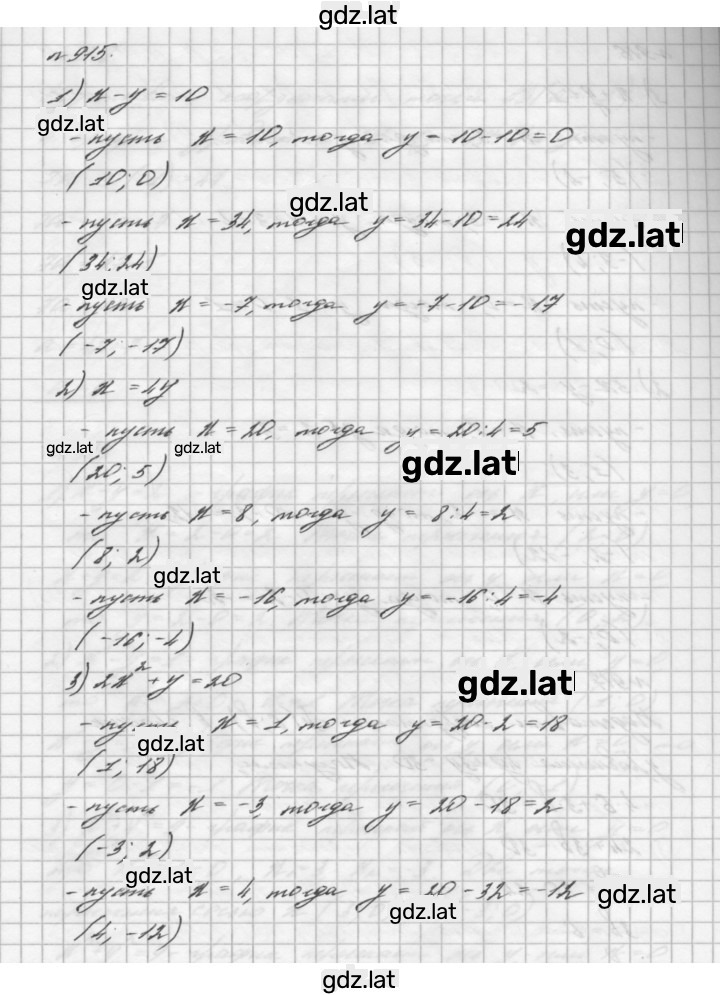 gdz.lat
№915.
1) x - y = 10
gdz.lat
- пусть x = 10, тогда y = 10-10=0
(10; 0)
gdz.lat
- пусть x = 34, тогда y = 34-10=24
gdz.lat
(34; 24)
gdz.lat
- пусть x = -7, тогда y = -7-10=-17
(-7; -17)
2) x = 4y
- пусть x = 20, тогда y = 20:4=5
gdz.lat gdz.lat
gdz.lat
(20; 5)
- пусть x = 8, тогда y = 8:4=2
(8; 2)
gdz.lat
- пусть x = -16, тогда y = -16:4=-4
(-16; -4)
3) 2x² + y = 20
gdz.lat
- пусть x = 1, тогда y = 20-2=18
gdz.lat
(1; 18)
- пусть x = -3, тогда y = 20-18=2
(-3; 2)
gdz.lat
- пусть x = 4, тогда y = 20-32=-12
gdz.lat
gdz.lat
(4; -12)
gdz.lat